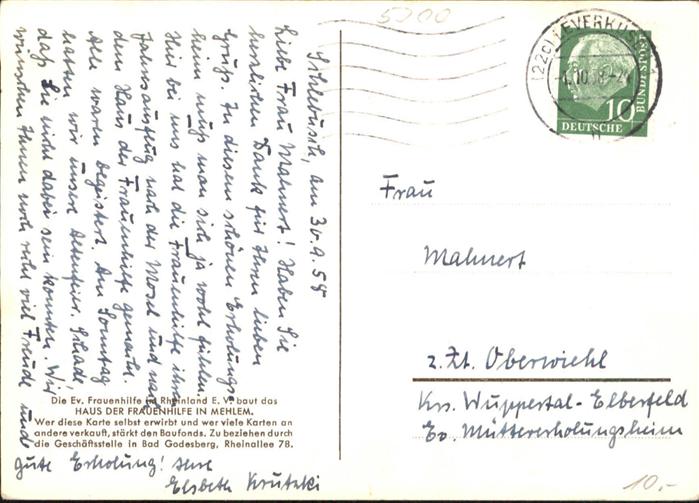 5200
Schlebusch, am 30.9.58
Liebe Frau Mahnert! Haben Sie
herzlichen Dank für Ihren lieben
Gruß. In diesem schönen Erholungs-
heim muß man sich ja wohl fühlen.
Hier bei uns hat die Frauenhilfe ihren
Jahresausflug nach der Mosel und nach
dem Haus der Frauenhilfe gemacht.
Alle waren begeistert. Am Sonntag
hatten wir unsere Altenfeier. Schade,
daß Sie nicht dabei sein konnten. Wir
wünschen Ihnen noch recht viel Freude und
gute Erholung! Ihre
Elsbeth Krutzki
Die Ev. Frauenhilfe im Rheinland E. V. baut das
HAUS DER FRAUENHILFE IN MEHLEM.
Wer diese Karte selbst erwirbt und wer viele Karten an
andere verkauft, stärkt den Baufonds. Zu beziehen durch
die Geschäftsstelle in Bad Godesberg, Rheinallee 78.
(22c) LEVERKUSEN 1
10
DEUTSCHE
BUNDESPOST
Frau
Mahnert
z. Zt. Oberwiehl
Krs. Wuppertal-Elberfeld
Ev. Müttererholungsheim
10.-